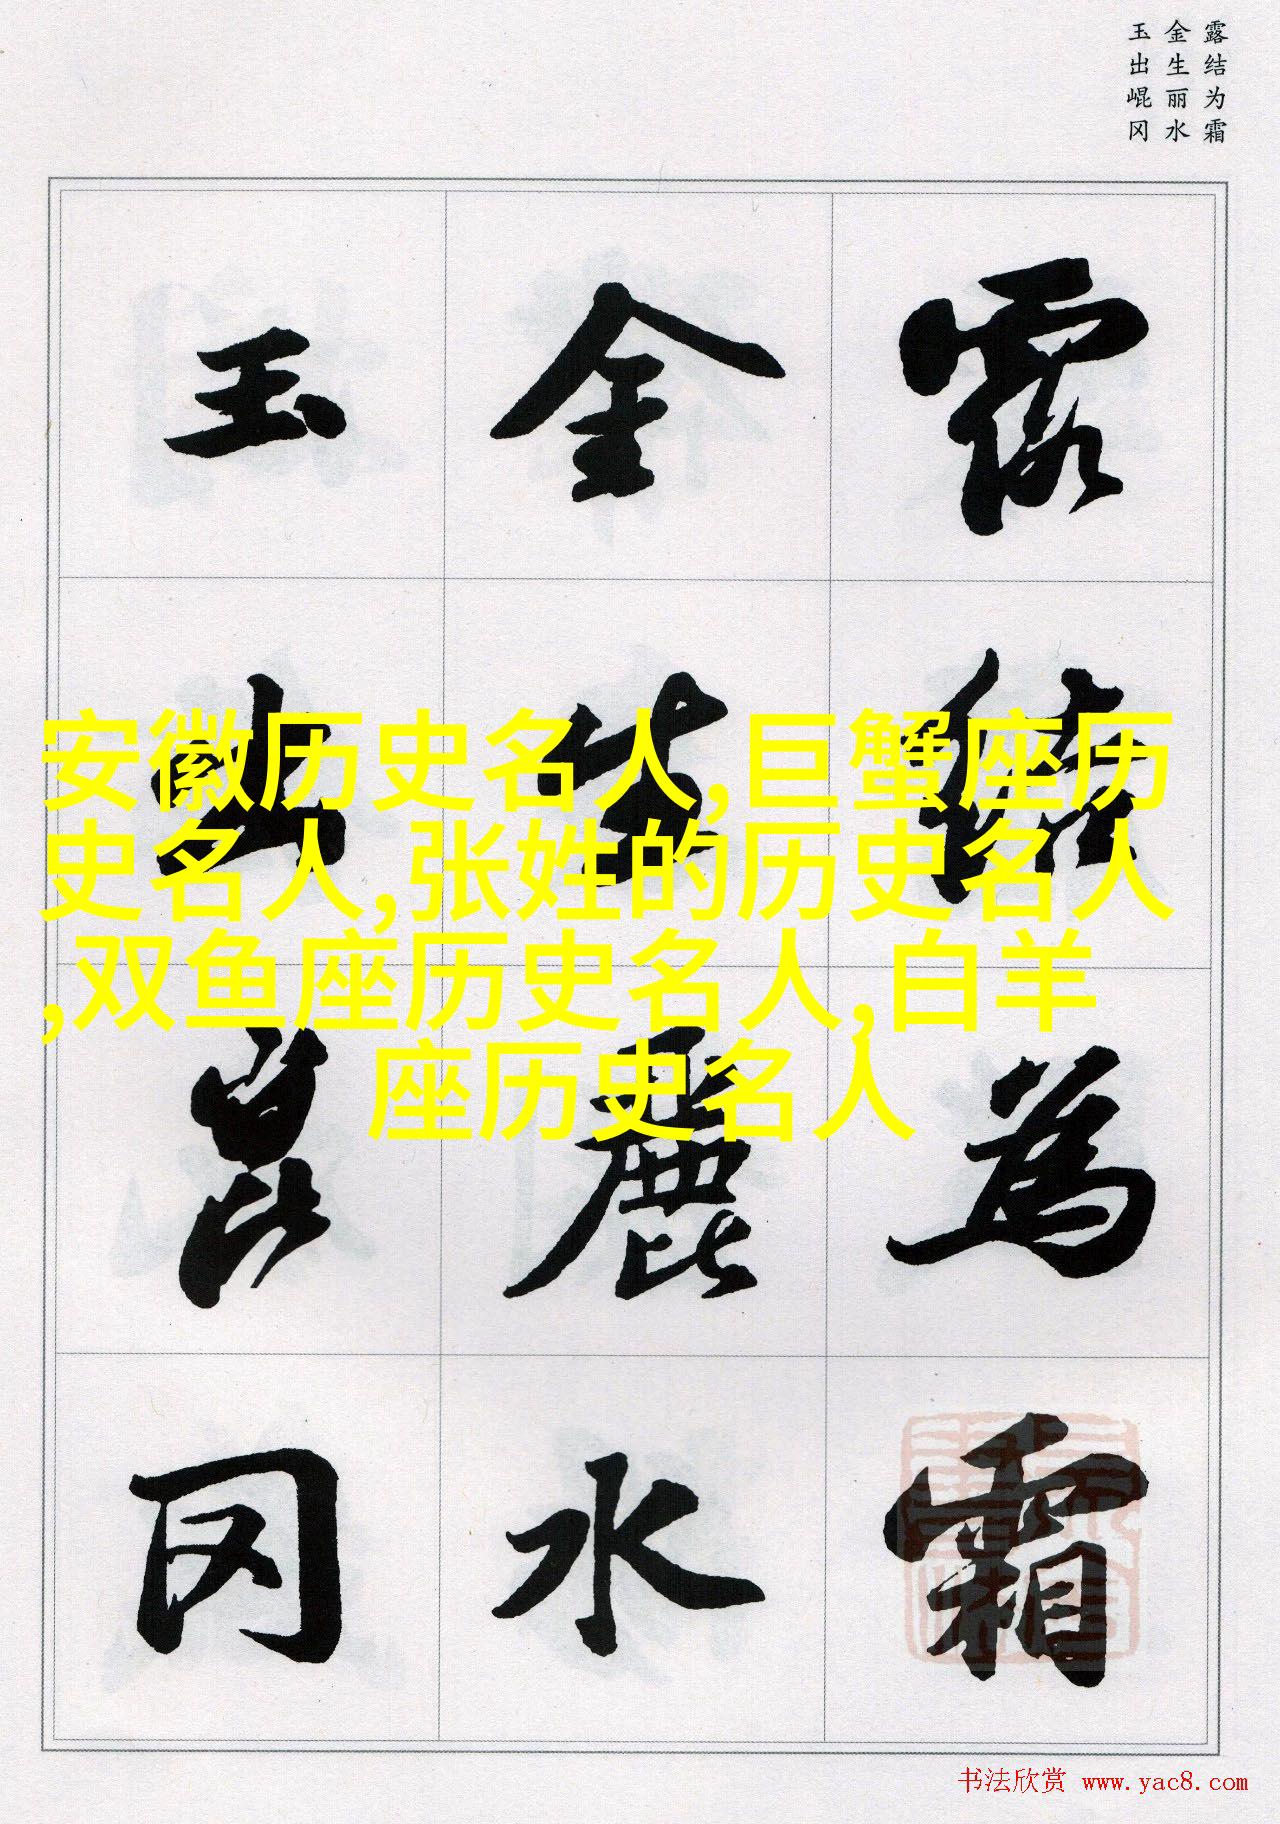 露结为霜
金生丽水
玉出崐冈
露結為霜
金生麗水
玉出崑冈
安徽历史名人,巨蟹座历
史名人,张姓的历史名人
,双鱼座历史名人,白羊
座历史名人
书法欣赏 www.yac8.com